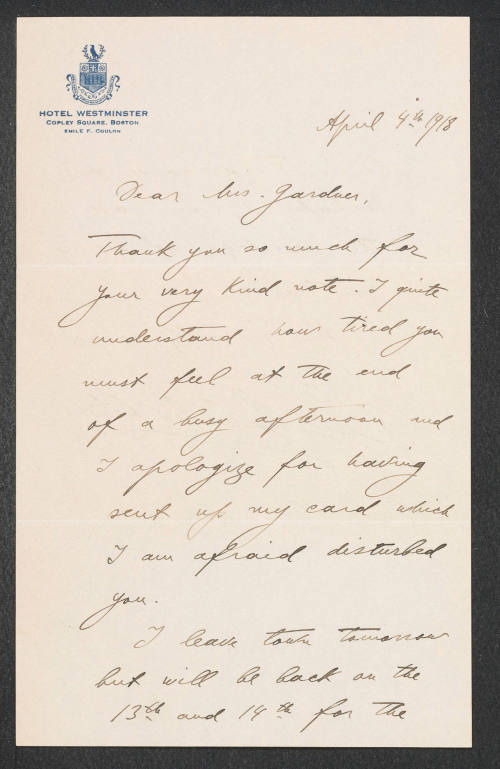 HOTEL WESTMINSTER
COPLEY SQUARE, BOSTON
EMILE F. COULON
April 4th 1918
Dear Mrs. Gardner,
Thank you so much for
your very kind note. I quite
understand how tired you
must feel at the end
of a busy afternoon and
I apologize for having
sent up my card which
I am afraid disturbed
you.
I leave town tomorrow
but will be back on the
13th and 14th for the